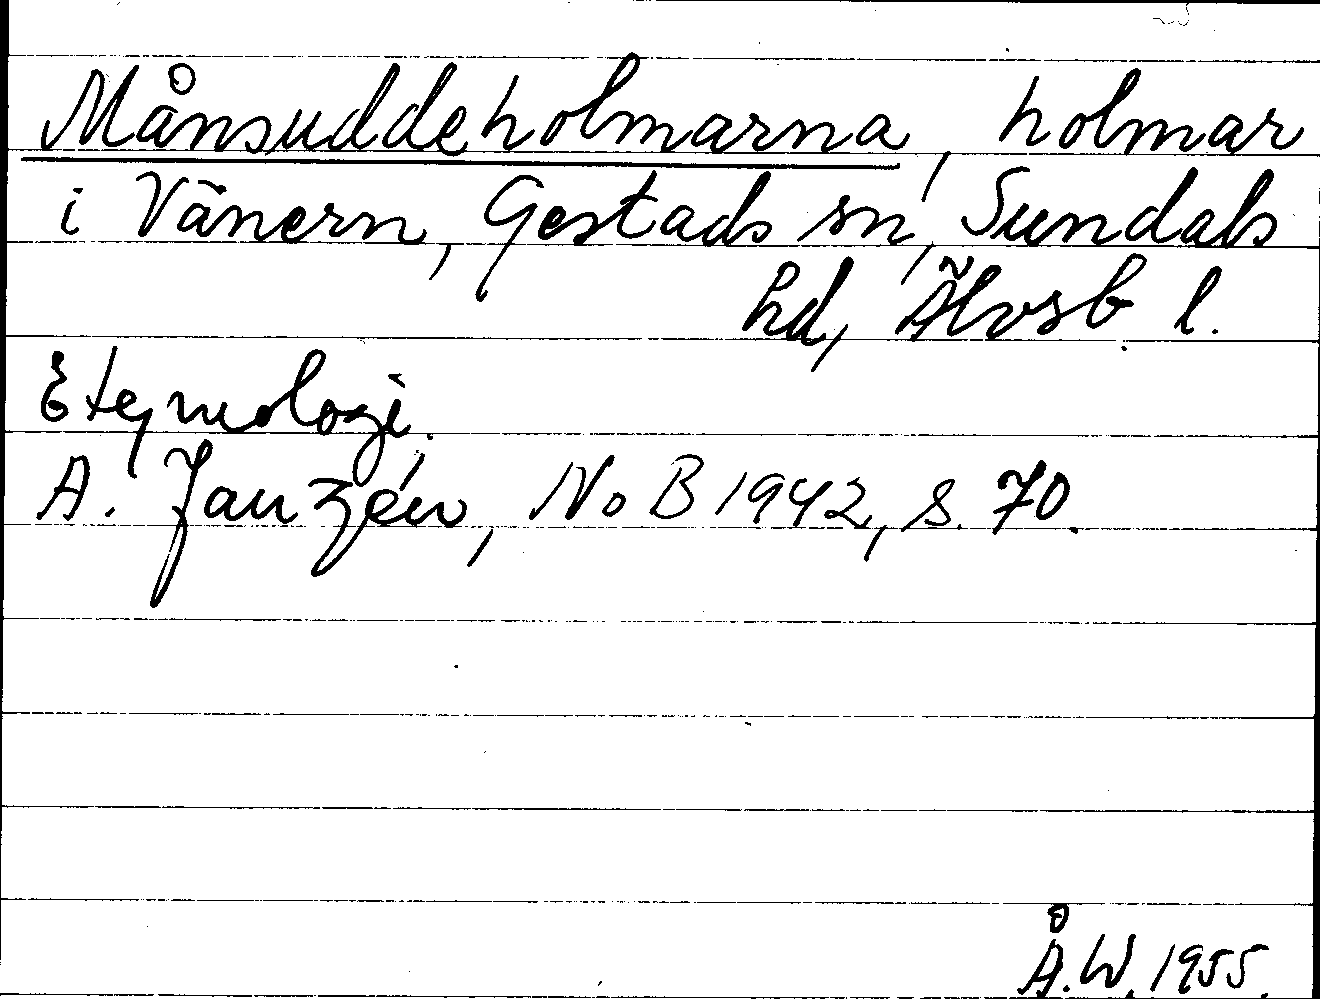 Månsuddeholmarna, holmar
i Vänern, Gestads sn, Sundals
hd, Älvsb. l.
Etymologi.
A. Janzén, NoB 1942, s. 70.
Å.W. 1955.